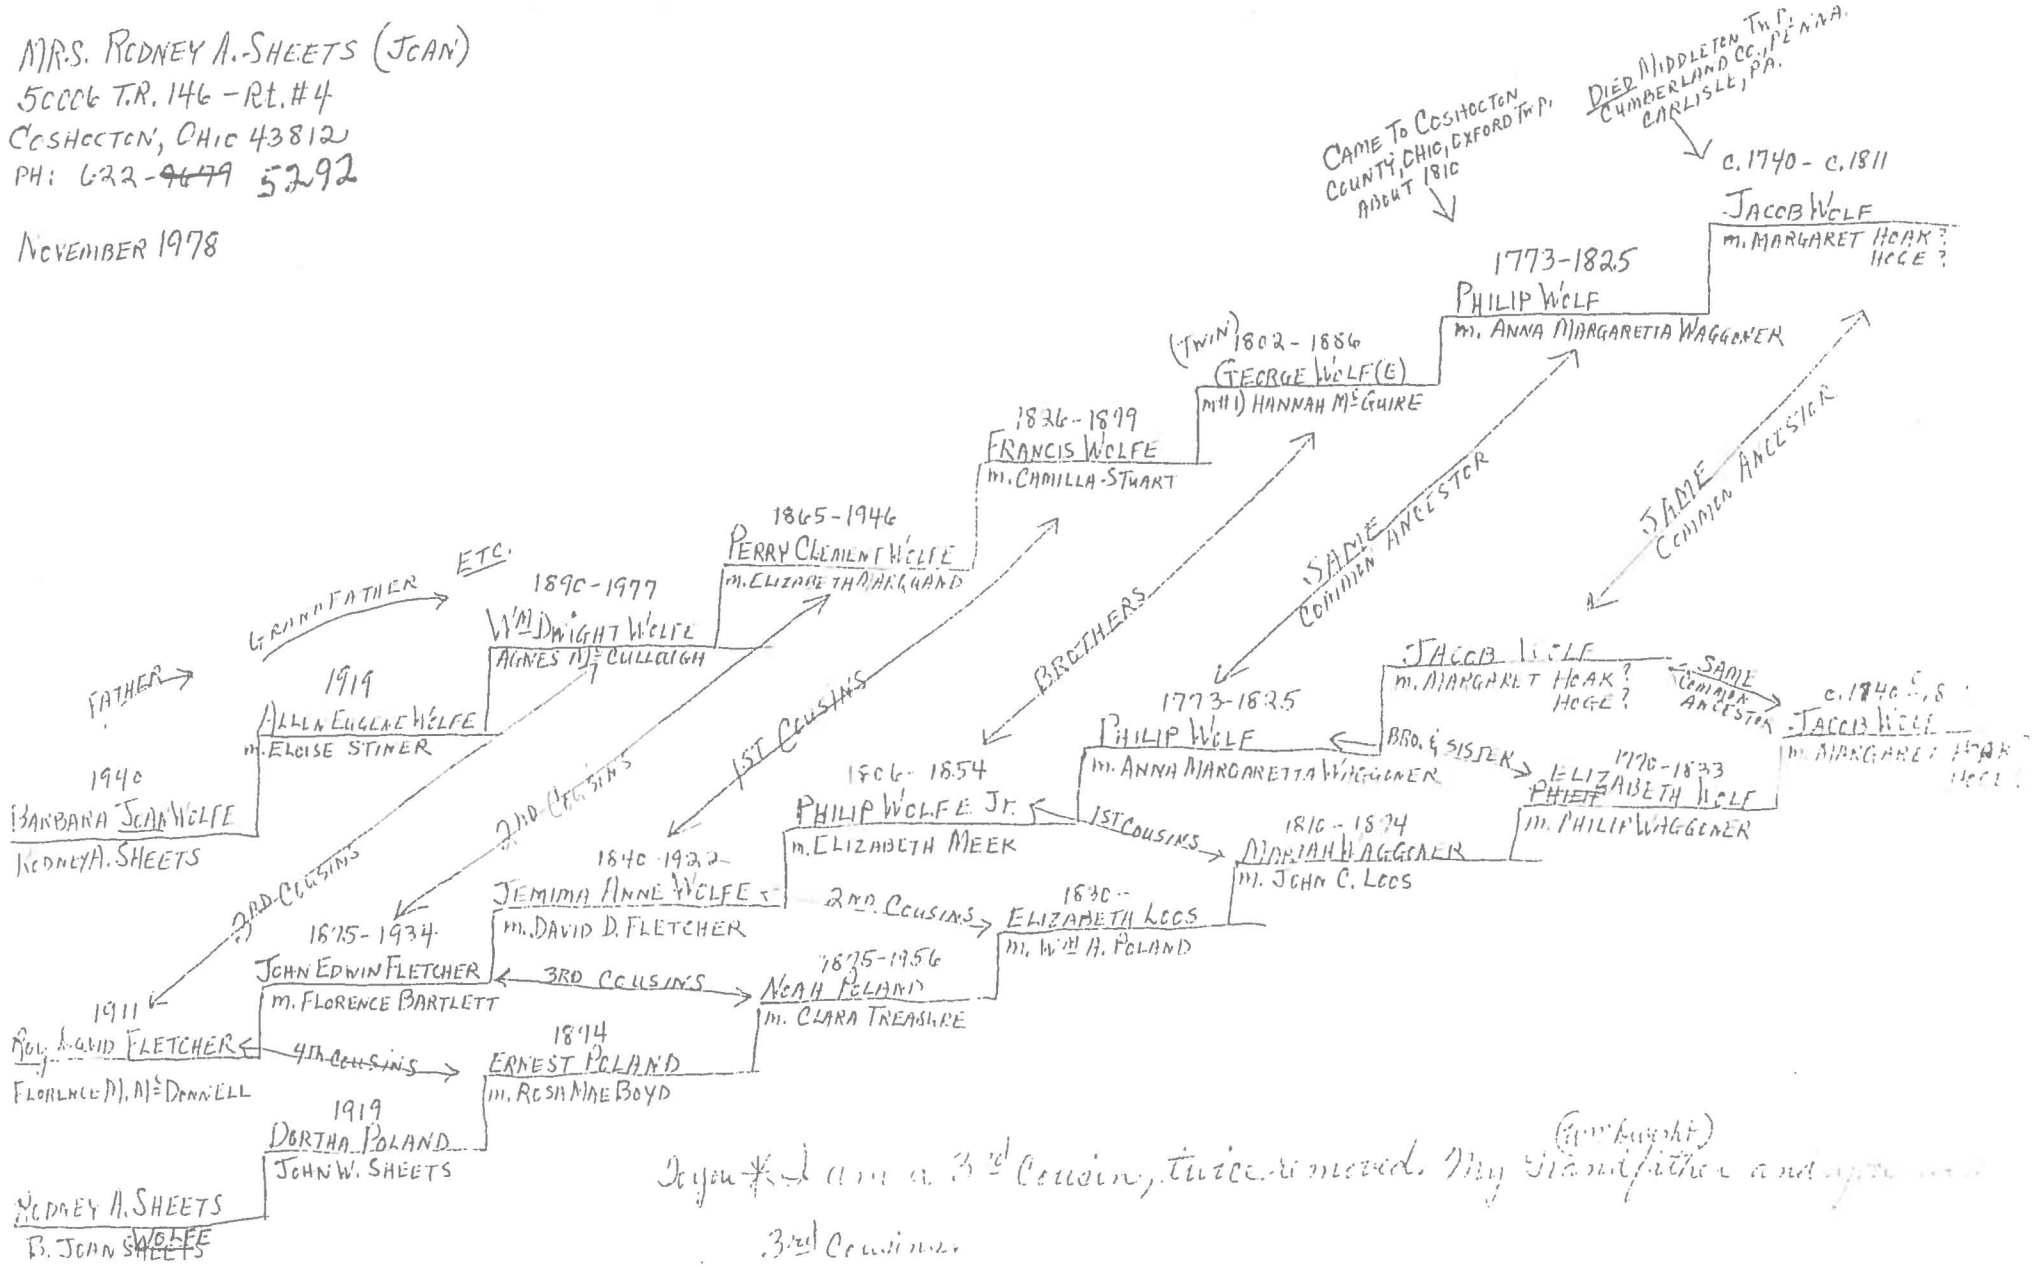 MRS. RODNEY A. SHEETS (JOAN)
50006 T.R. 146 - Rt. #4
COSHOCTON, OHIO 43812
PH: 622-9679 5292
NOVEMBER 1978
DIED MIDDLETON TWP.
CUMBERLAND CO., PENNA.
CARLISLE, PA.
CAME TO COSHOCTON
COUNTY, OHIO, OXFORD TWP.
ABOUT 1810
c. 1740 - c. 1811
JACOB WOLF
m. MARGARET HOAK?
HOGE?
1773-1825
PHILIP WOLF
m. ANNA MARGARETTA WAGGONER
(TWIN) 1802-1886
GEORGE WOLF(E)
m#1) HANNAH McGUIRE
1826-1899
FRANCIS WOLFE
m. CAMILLA STUART
1865-1946
PERRY CLEMENT WOLFE
m. ELIZABETH MARQUAND
1890-1977
WM DWIGHT WOLFE
AGNES McCULLOUGH
FATHER
GRANDFATHER
ETC.
1919
ALLEN EUGENE WOLFE
m. ELOISE STINER
1940
BARBARA JOAN WOLFE
RODNEY A. SHEETS
3RD COUSINS
2ND COUSINS
1ST COUSINS
BROTHERS
SAME
COMMON ANCESTOR
SAME
COMMON ANCESTOR
JACOB WOLF
m. MARGARET HOAK?
HOGE?
SAME
COMMON
ANCESTOR
c. 1840
JACOB WOLF
m. MARGARET HOAK
HOGE?
1773-1825
PHILIP WOLF
m. ANNA MARGARETTA WAGGONER
BRO. & SISTER
1770-1833
ELIZABETH WOLF
PHILIP
m. PHILIP WAGGONER
1806-1854
PHILIP WOLFE Jr.
m. ELIZABETH MEEK
1ST COUSINS
1810-1894
MARIAH WAGGONER
m. JOHN C. LOOS
1840-1922
JEMIMA ANNE WOLFE
m. DAVID D. FLETCHER
2ND COUSINS
1830-
ELIZABETH LOOS
m. WM A. POLAND
1875-1934
JOHN EDWIN FLETCHER
m. FLORENCE BARTLETT
3RD COUSINS
1875-1956
NOAH POLAND
m. CLARA TREASURE
1911
ROY DAVID FLETCHER
FLORENCE M. McDONNELL
4TH COUSINS
1894
ERNEST POLAND
m. ROSA MAE BOYD
1919
DORTHA POLAND
JOHN W. SHEETS
RODNEY A. SHEETS
B. JOAN SHEETS WOLFE
(Wm Dwight)
To you * I am a 3rd Cousin, twice removed. My Grandfather and
3rd Cousins.